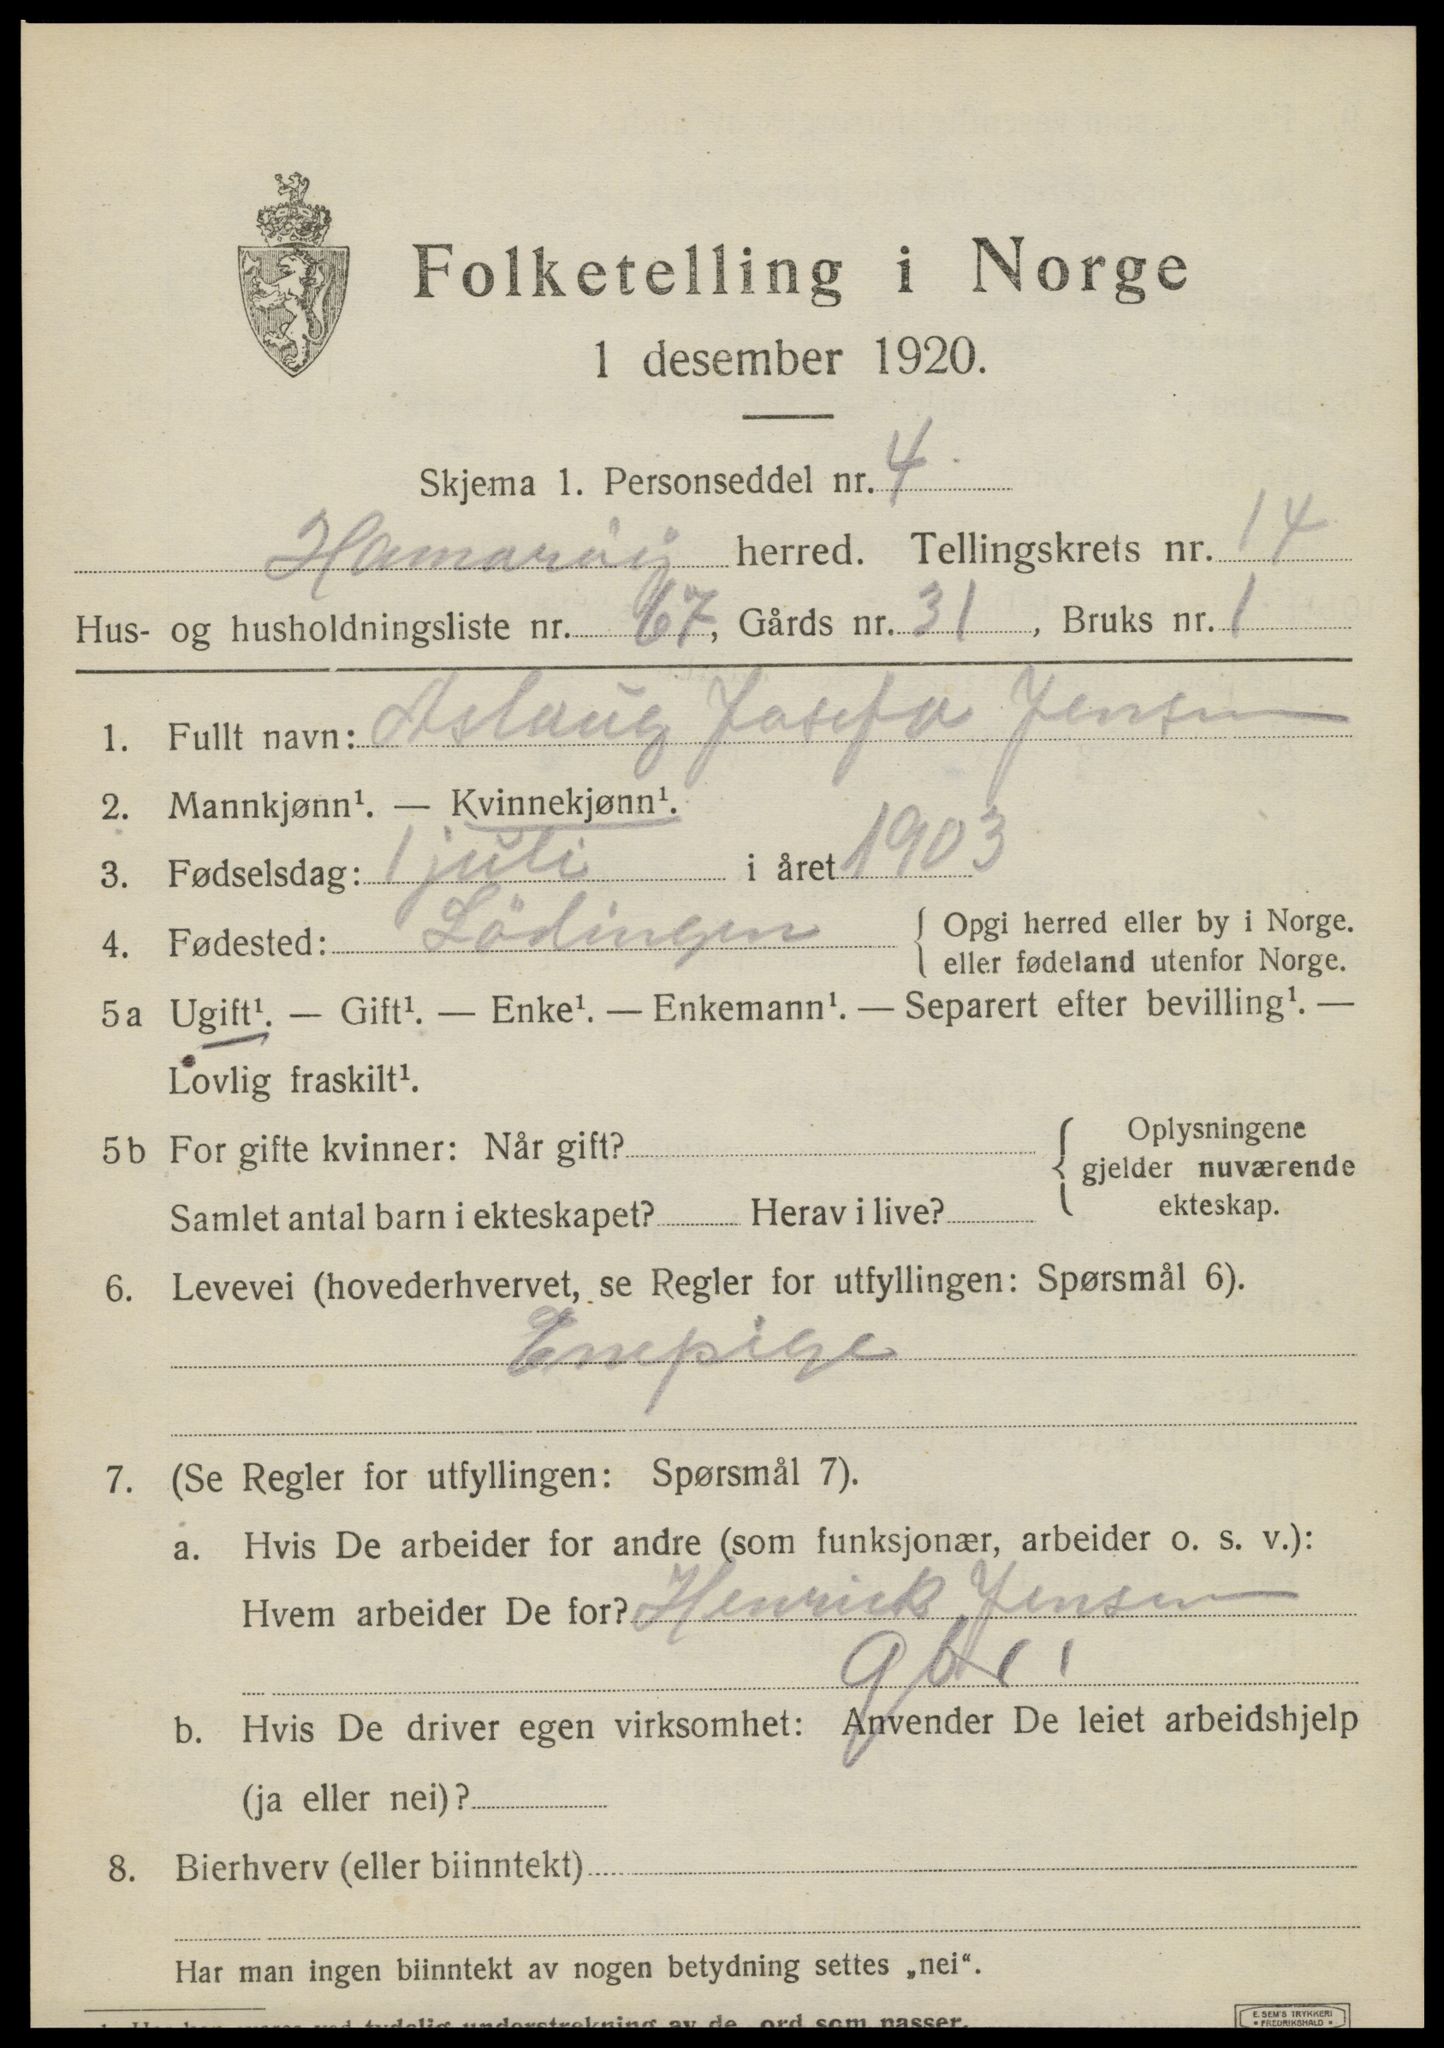 Folketelling i Norge
1 desember 1920.
Skjema 1. Personseddel nr. 4
Hamarøy herred. Tellingskrets nr. 14
Hus- og husholdningsliste nr. 67, Gårds nr. 31, Bruks nr. 1
1. Fullt navn: Aslaug Josefa Jensen
2. Mannkjønn¹. — Kvinnekjønn¹.
3. Fødselsdag: 1 juli i året 1903
4. Fødested: Lödingen { Opgi herred eller by i Norge.
eller fødeland utenfor Norge.
5a Ugift¹. — Gift¹. — Enke¹. — Enkemann¹. — Separert efter bevilling¹. —
Lovlig fraskilt¹.
5b For gifte kvinner: Når gift? { Oplysningene
gjelder nuværende
Samlet antal barn i ekteskapet? Herav i live? ekteskap.
6. Levevei (hovederhvervet, se Regler for utfyllingen: Spørsmål 6).
7. (Se Regler for utfyllingen: Spørsmål 7).
a. Hvis De arbeider for andre (som funksjonær, arbeider o. s. v.):
Hvem arbeider De for? Henrick Jensen
b. Hvis De driver egen virksomhet: Anvender De leiet arbeidshjelp
(ja eller nei)?
8. Bierhverv (eller biinntekt)
Har man ingen biinntekt av nogen betydning settes „nei“.
E. SEM'S TRYKKERI
1. Her kan svares ved tydelig understrekning av de ord som passer.
• FREDRIKSHALD •